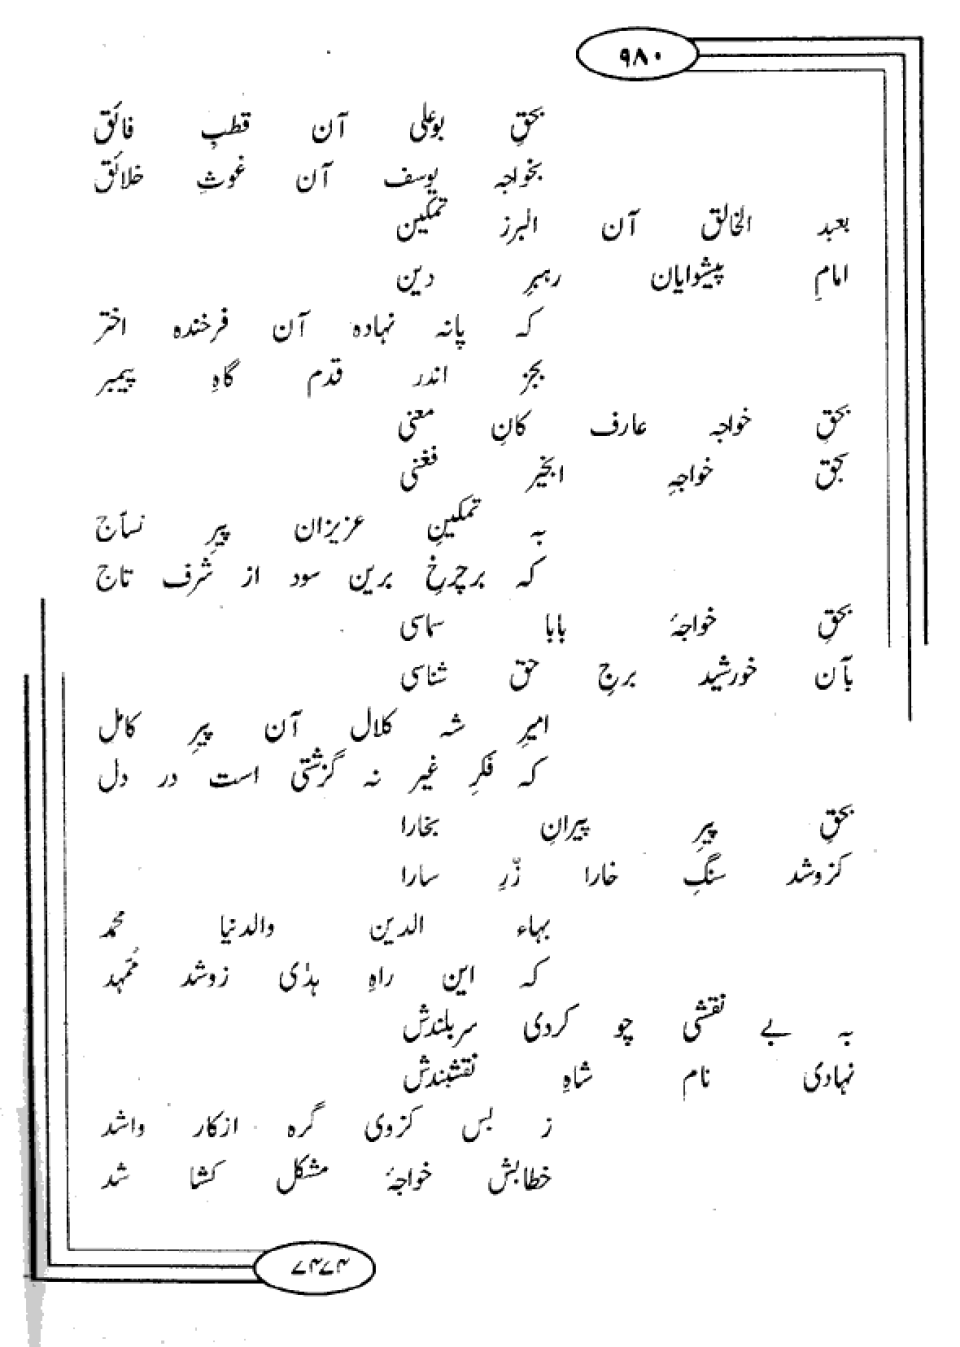 ۹۸۰
بحقِ بوعلی آن قطبِ فائق
بخواجہ یوسف آن غوثِ خلائق
بعبد الخالق آن البرز تمکین
امامِ پیشوایان رہبرِ دین
کہ پانہ نہادہ آن فرخندہ اختر
بجز اندر قدم گاہِ پیمبر
بحقِ خواجہ عارف کانِ معنی
بحق خواجہِ ابخیر فغنی
بہ تمکینِ عزیزان پیرِ نساّج
کہ برچرخِ برین سود از شرف تاج
بحقِ خواجۂ بابا سماسی
بآن خورشید برجِ حق شناسی
امیرِ شہ کلال آن پیرِ کامل
کہ فکرِ غیر نہ گزشتی است در دل
بحقِ پیرِ پیرانِ بخارا
کزوشد سنگِ خارا زّرِ سارا
بہاء الدین والدنیا محمد
کہ این راہِ ہدٰی زوشد مُمَہد
بہ بے نقشی چو کردی سربلندش
نہادی نام شاہِ نقشبندش
ز بس کزوی گرہ ازکار واشد
خطابش خواجۂ مشکل کشا شد